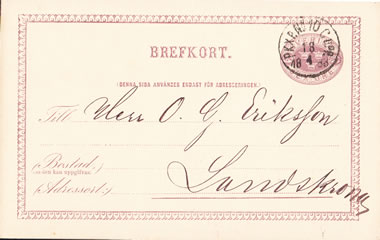 BREFKORT.
(DENNA SIDA ANVÄNDES ENDAST FÖR ADRESSERINGEN.)
Till Herr O. G. Eriksson
(Bostad,
om den kan uppgifvas)
(Adressort:) Landskrona